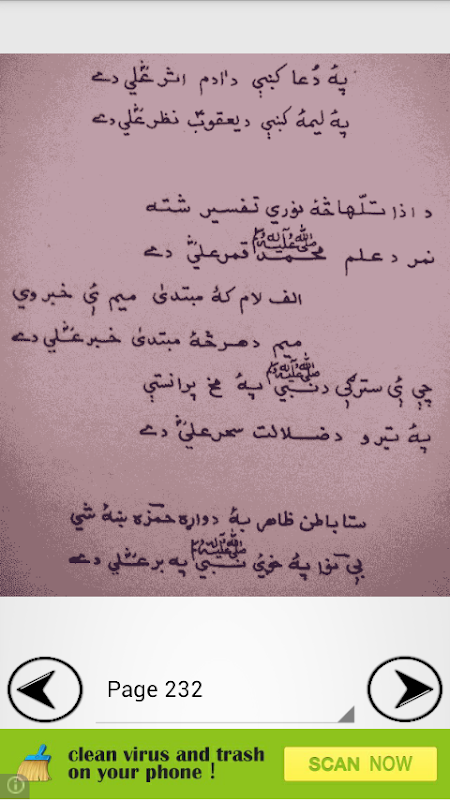 په دُعا کښې د ادم اثر علي دے
په لیمه کښې د یعقوبؑ نظر علي دے
د اذا تلّٰها څه نورې تفسیر شته
نمر د علم محمد ﷺ قمر علي دے
الف لام که مبتدیٰ میم ئې خبر وي
میم د هر څه مبتدیٰ خبر علي دے
چې ئې سترګې د نبي ﷺ په مخ پرانستې
په تیرو د ضلالت سحر علي دے
ستا باطن ظاهر به دواړه حمزه ښه شي
په خوئ نبي ﷺ په بر علي دے
Page 232
clean virus and trash
on your phone !
SCAN NOW